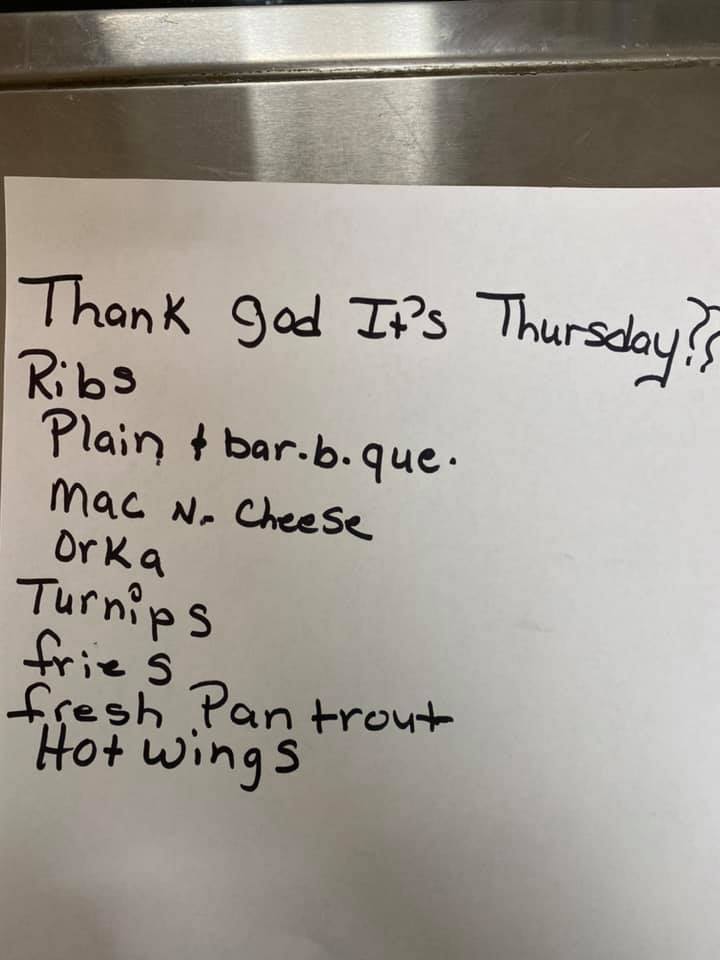 Thank god It's Thursday??
Ribs
Plain & bar.b.que.
Mac N. Cheese
Orka
Turnips
fries
fresh Pan trout
Hot wings